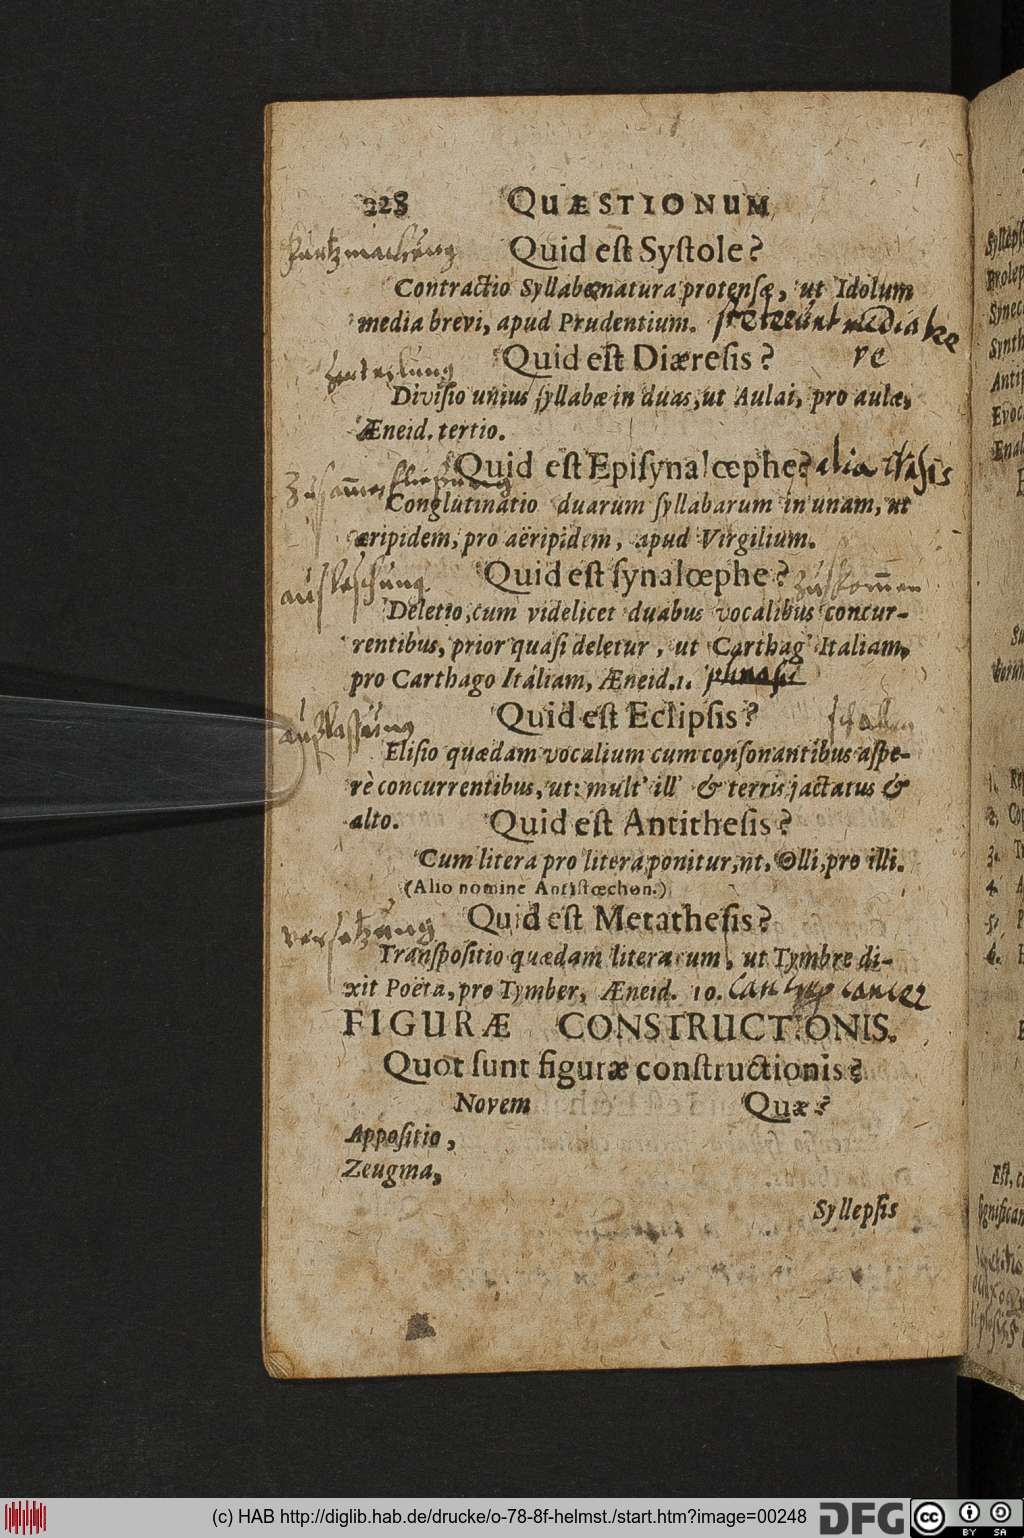 228 QUÆSTIONUM
Kurtzmachung
Quid eſt Syſtole?
Contractio Syllabæ natura protenſæ, ut Idolum
media brevi, apud Prudentium. ſteterunt media bre
ve
Quid eſt Diæreſis?
Diviſio unius ſyllabæ in duas, ut Aulai, pro aulæ,
Æneid. tertio.
Quid eſt Epiſynalœphe?
Conglutinatio duarum ſyllabarum in unam, ut
æripidem, pro aëripidem, apud Virgilium.
Quid eſt ſynalœphe?
Deletio, cum videlicet duabus vocalibus concur-
rentibus, prior quaſi deletur, ut Carthag' Italiam,
pro Carthago Italiam, Æneid. 1.
außlaſſung
Quid eſt Eclipſis?
Eliſio quædam vocalium cum conſonantibus aſpe-
rè concurrentibus, ut: mult' ill' & terris jactatus &
alto.
Quid eſt Antitheſis?
Cum litera pro litera ponitur, ut, Olli, pro illi.
(Alio nomine Antiſtœchon.)
verſetzung
Quid eſt Metatheſis?
Tranſpoſitio quædam literarum, ut Tymbre di-
xit Poëta, pro Tymber, Æneid. 10.
FIGURÆ CONSTRUCTIONIS.
Quot ſunt figuræ conſtructionis?
Novem Quæ?
Appoſitio,
Zeugma,
Syllepſis
(c) HAB http://diglib.hab.de/drucke/o-78-8f-helmst./start.htm?image=00248 DFG cc BY SA